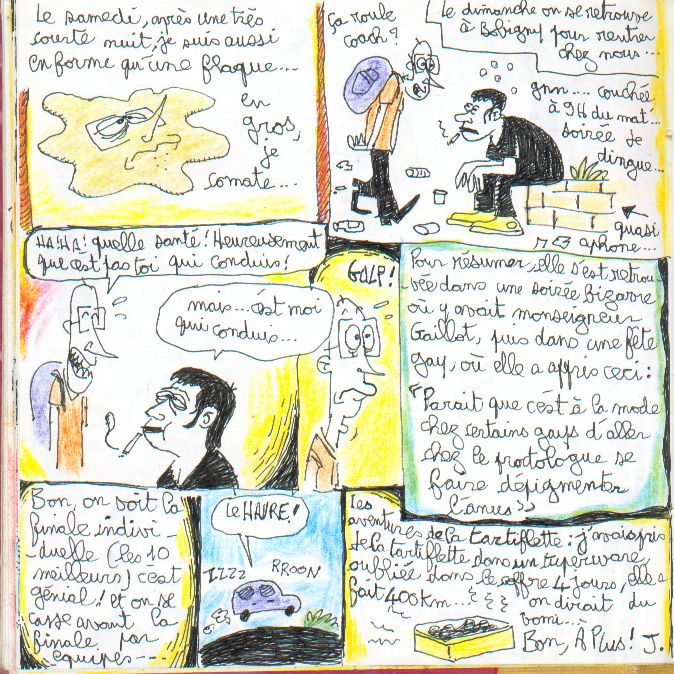 Le samedi, après une très
courte nuit, je suis aussi
en forme qu'une flaque...
en
gros,
je
comate...
Ça roule
coach?
Le dimanche on se retrouve
à Bobigny pour rentrer
chez nous...
gnn.... couchée
à 9H du mat'...
soirée de
dingue...
quasi
aphone...
HA!HA! quelle santé! Heureusement
que c'est pas toi qui conduis!
mais... c'est moi
qui conduis...
GULP!
Pour résumer, elle s'est retrou-
vée dans une soirée bizarre
où y avait monseigneur
Gaillot, puis dans une fête
gay, où elle a appris ceci:
"Parait que c'est à la mode
chez certains gays d'aller
chez le proctologue se
faire dépigmenter
l'anus"
Bon, on voit la
finale indivi
duelle (les 10
meilleurs) c'est
génial! et on se
casse avant la
finale par
equipes----
Le HAVRE!
IZZZ RROON
Les
aventures de la tartiflette: j'avais pris
de la tartiflette dans un tuperware,
oubliée dans le coffre 4 jours, elle a
fait 400km...
on dirait du
vomi...
Bon, A Plus! J.